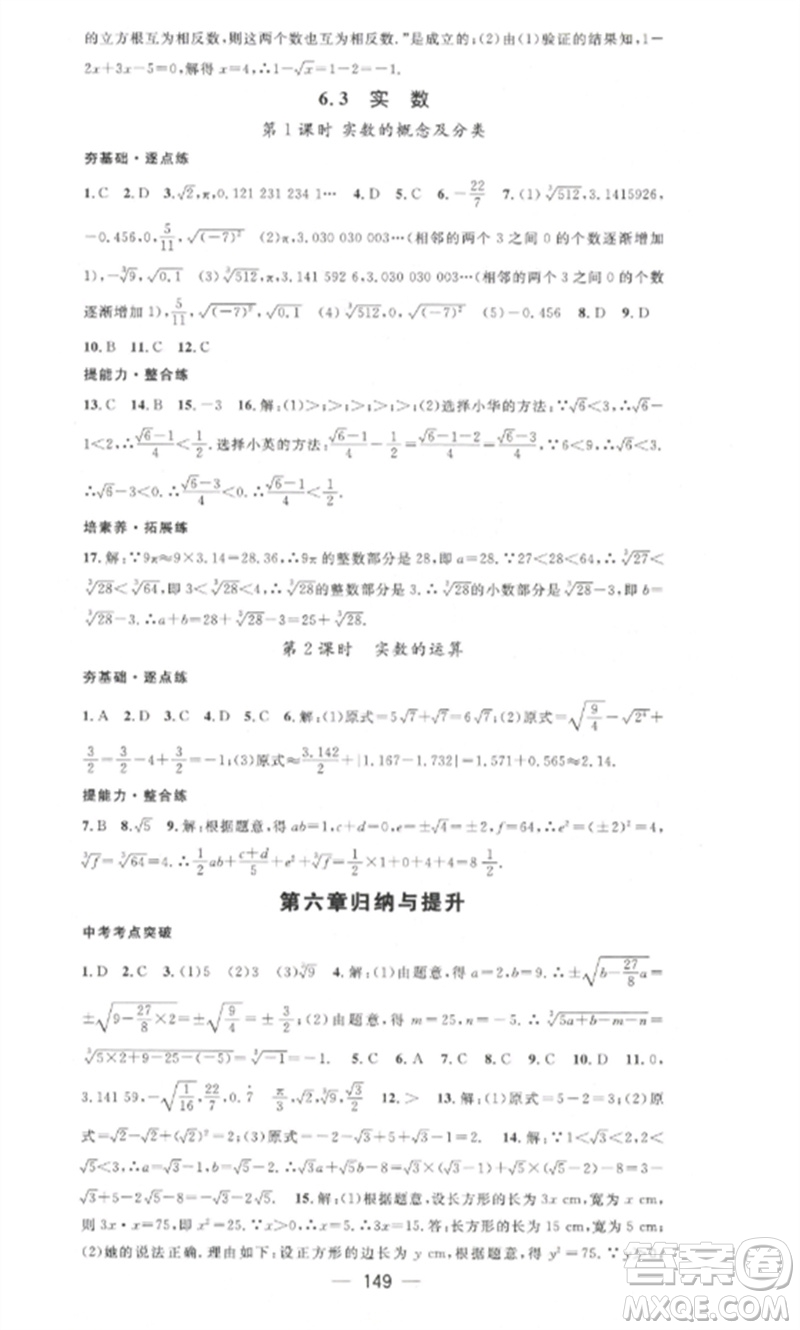 的立方根互为相反数,则这两个数也互为相反数.”是成立的;(2)由(1)验证的结果知,1-
2x+3x-5=0,解得 x=4,∴1-√x=1-2=-1.
6.3 实 数
第1课时 实数的概念及分类
夯基础·逐点练
1.C 2.D 3.√2,π,0.121 231 234 1… 4.D 5.C 6.-22/7 7.(1)∛512,3.1415926,
-0.456,0,5/11,√(-7)² (2)π,3.030 030 003…(相邻的两个3之间0的个数逐渐增加
1),-∛9,√0.1 (3)∛512,π,3.141 592 6,3.030 030 003…(相邻的两个3之间0的个数
逐渐增加1),5/11,√(-7)²,√0.1 (4)∛512,0,√(-7)² (5)-0.456 8.D 9.D
10.B 11.C 12.C
提能力·整合练
13.C 14.B 15.-3 16.解:(1)>;>;>;>;>;(2)选择小华的方法:∵√6<3,∴√6-
1<2,∴(√6-1)/4<1/2.选择小英的方法:(√6-1)/4-1/2=(√6-1-2)/4=(√6-3)/4.∵6<9,∴√6<3.
∴√6-3<0.∴(√6-3)/4<0.∴(√6-1)/4<1/2.
培素养·拓展练
17.解:∵9π≈9×3.14=28.26,∴9π的整数部分是28,即a=28.∵27<28<64,∴∛27<
∛28<∛64,即3<∛28<4.∴∛28的整数部分是3.∴∛28的小数部分是∛28-3,即b=
∛28-3.∴a+b=28+∛28-3=25+∛28.
第2课时 实数的运算
夯基础·逐点练
1.A 2.D 3.D 4.D 5.C 6.解:(1)原式=5√7+√7=6√7;(2)原式=√(9/4)-√2⁴+
3/2=3/2-4+3/2=-1;(3)原式≈3.142/2+|1.167-1.732|=1.571+0.565≈2.14.
提能力·整合练
7.B 8.√5 9.解:根据题意,得ab=1,c+d=0,e=±√4=±2,f=64,∴e²=(±2)²=4,
∛f=∛64=4.∴1/2ab+(c+d)/5+e²+∛f=1/2×1+0+4+4=8 1/2.
第六章归纳与提升
中考考点突破
1.D 2.C 3.(1)5 (2)3 (3)∛9 4.解:(1)由题意,得a=2,b=9.∴±√(b-27/8a)=
±√(9-27/8×2)=±√(9/4)=±3/2;(2)由题意,得m=25,n=-5.∴∛(5a+b-m-n)=
∛(5×2+9-25-(-5))=∛-1=-1. 5.C 6.A 7.C 8.C 9.C 10.A 11.0,
3.141 59,-√(1/16),22/7,0.7̇ π/3,√2,∛9,√3/2 12.> 13.解:(1)原式=5-2=3;(2)原
式=√2-√2+2=2;(3)原式=√3-3+5+√3=2√3+2. 14.解:∵1<√3<2,2<
√5<3,∴a=√3,b=√5-2.∴
√5-2√5-8=-8-√5. 15.解:(1)根据题意,设长方形的长为3x cm,宽为x cm,
则3x·x=75,即x²=25.∵x>0,∴x=5,∴3x=15.答:长方形的长为15 cm,宽为5 cm;
(2)她的说法正确.理由如下:设正方形的边长为y cm,根据题意,得y²=75.
149
答案圈
MXQE.COM